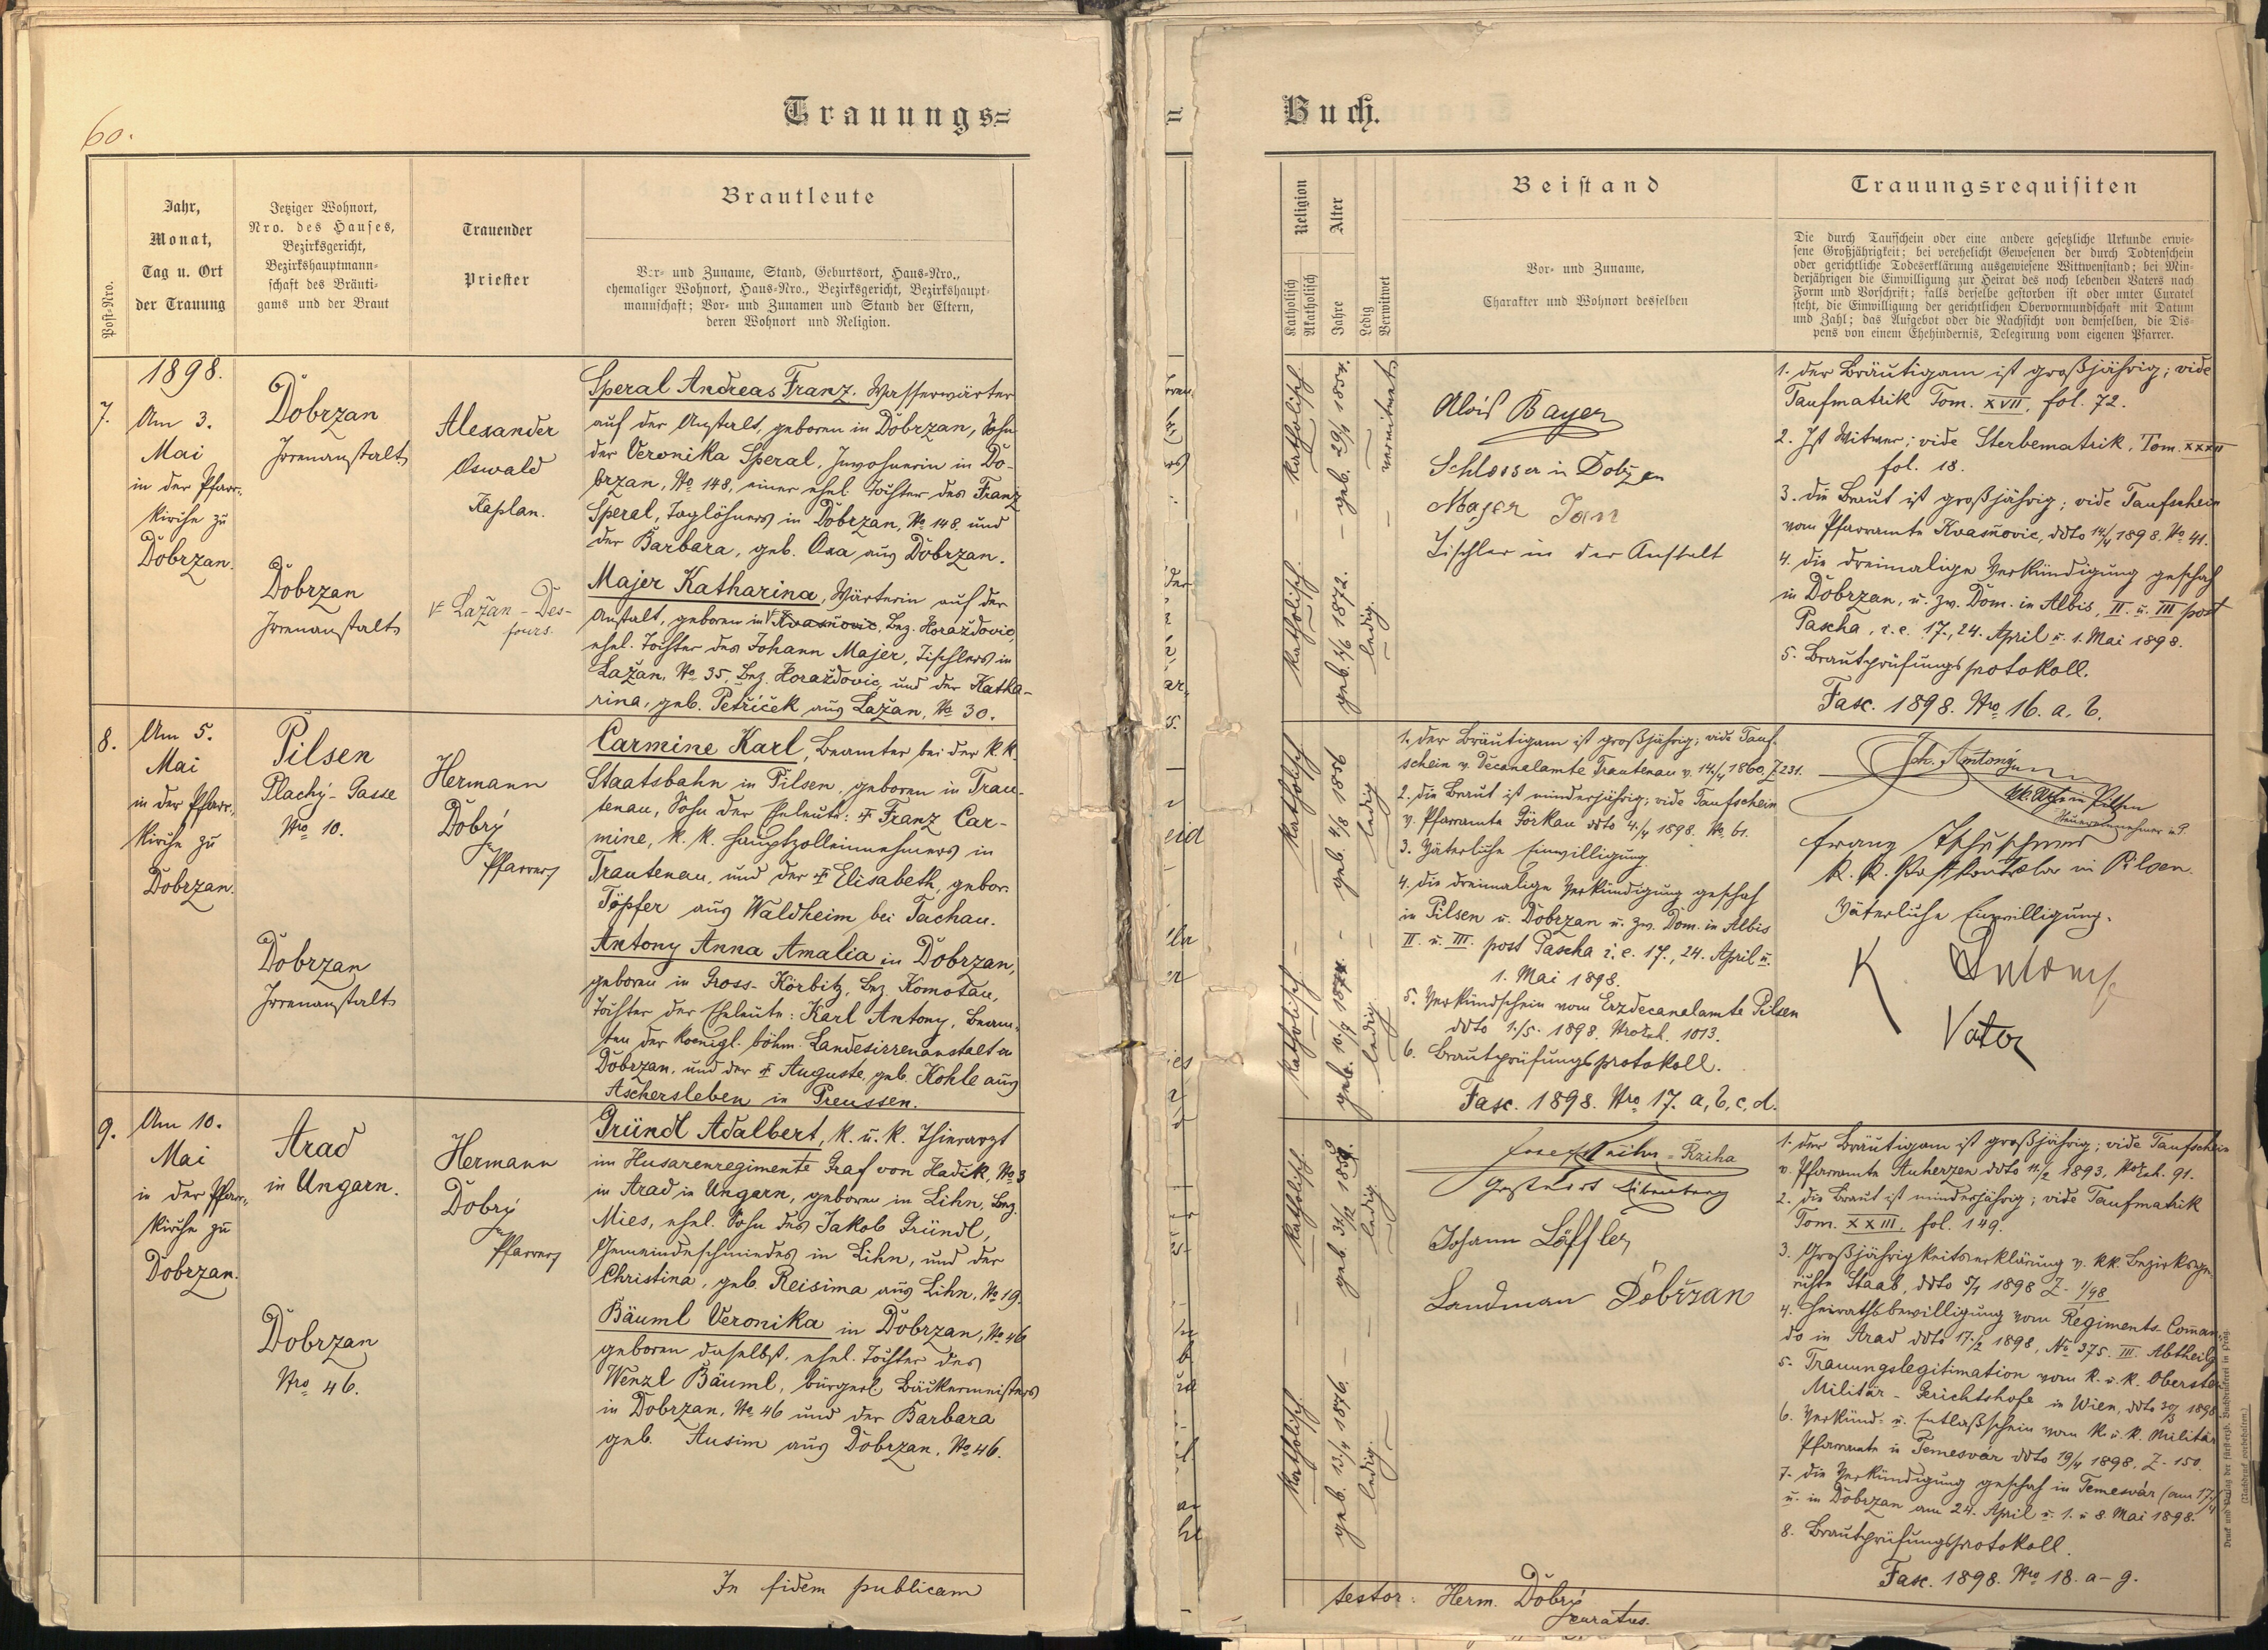 60.
Trauungs=
Post=Nro.
Jahr,
Monat,
Tag u. Ort
der Trauung
Jetziger Wohnort,
Nro. des Hauses,
Bezirksgericht,
Bezirkshauptmann=
schaft des Bräuti=
gams und der Braut
Trauender
Priester
Brautleute
Vor= und Zuname, Stand, Geburtsort, Haus=Nro.,
ehemaliger Wohnort, Haus=Nro., Bezirksgericht, Bezirkshaupt=
mannschaft; Vor= und Zunamen und Stand der Eltern,
deren Wohnort und Religion.
1898.
7.
Am 3.
Mai
in der Pfarr-
kirche zu
Dobrzan.
Dobrzan
Irrenanstalt
Dobrzan
Irrenanstalt
Alexander
Oswald
Kaplan.
Lažan - Des-
fours.
Speral Andreas Franz. Wasserwärter
auf der Anstalt, geboren in Dobrzan, Sohn
der Veronika Speral, Inwohnerin in Do-
brzan, No 148, einer ehel. Tochter des Franz
Speral, Taglöhners in Dobrzan, No 148. und
der Barbara, geb. Oxa aus Dobrzan.
Majer Katharina, Wärterin auf der
Anstalt, geboren in Kvasňovic, Bez. Horaždovic,
ehel. Tochter des Johann Majer, Tischlers in
Lažan, No 35, Bez. Horaždovic und der Katha-
rina, geb. Petříček aus Lažan, No 30.
8.
Am 5.
Mai
in der Pfarr-
kirche zu
Dobrzan.
Pilsen
Plachý-Gasse
Nro 10.
Dobrzan
Irrenanstalt
Hermann
Dobrý
Pfarrer
Carmine Karl, Beamter bei der k.k.
Staatsbahn in Pilsen, geboren in Trau-
tenau, Sohn der Eheleute: † Franz Car-
mine, k. k. Hauptzolleinnehmers in
Trautenau, und der † Elisabeth, gebor.
Töpfer aus Waldheim bei Tachau.
Antony Anna Amalia in Dobrzan,
geboren in Gross-Körbitz, Bez. Komotau,
Tochter der Eheleute: Karl Antony, Beam-
ten der koenigl. böhm. Landesirrenanstalt
Dobrzan, und der † Auguste, geb. Kohle aus
Aschersleben in Preussen.
9.
Am 10.
Mai
in der Pfarr-
kirche zu
Dobrzan.
Arad
in Ungarn.
Dobrzan
Nro 46.
Hermann
Dobrý
Pfarrer
Gründl Adalbert, k. u. k. Thierarzt
im Husarenregimente Graf von Hadik, No 3
in Arad in Ungarn, geboren in Lihn, Bez.
Mies, ehel. Sohn des Jakob Gründl,
Gemeindeschmiedes in Lihn, und der
Christina, geb. Reisima aus Lihn, No 19.
Bäuml Veronika in Dobrzan, No 46
geboren daselbst, ehel. Tochter des
Wenzl Bäuml, bürgerl. Bäckermeisters
in Dobrzan, No 46 und der Barbara
geb. Ausim aus Dobrzan, No 46.
In fidem publicam
Buch.
Religion
Katholisch
Akatholisch
Alter
Jahre
Ledig
Verwitwet
Beistand
Vor= und Zuname,
Charakter und Wohnort desselben
Trauungsrequisiten
Die durch Taufschein oder eine andere gesetzliche Urkunde erwie=
sene Großjährigkeit; bei verehelicht Gewesenen der durch Todtenschein
oder gerichtliche Todeserklärung ausgewiesene Wittwenstand; bei Min=
derjährigen die Einwilligung zur Heirat des noch lebenden Vaters nach
Form und Vorschrift; falls derselbe gestorben ist oder unter Curatel
steht, die Einwilligung der gerichtlichen Obervormundschaft mit Datum
und Zahl; das Aufgebot oder die Nachsicht von demselben, die Dis=
pens von einem Ehehindernis, Delegirung vom eigenen Pfarrer.
katholisch
geb. 29/1 1854.
verwitwet
katholisch
1872.
ledig.
Alois Bayer
Schlosser in Dobrzan
Majer Jan
Tischler in der Anstalt
1. Der Bräutigam ist großjährig; vide
Taufmatrik Tom. XVII, fol. 72.
2. Ist Witwer; vide Sterbematrik, Tom.
fol. 18.
3. Die Braut ist großjährig; vide Taufschein
vom Pfarramte Kvasňovic, ddto 14/4 1898. No 41.
4. Die dreimalige Verkündigung geschah
in Dobrzan, u. zw. Dom. in Albis, II. u. III post
Pascha, i. e. 17., 24. April u. 1. Mai 1898.
5. Brautprüfungsprotokoll.
Fasc. 1898. Nro 16. a, b.
katholisch
ledig
katholisch
ledig.
1. Der Bräutigam ist großjährig; vide Tauf-
schein v. Decanalamte Trautenau v. 14/4 1860, J. 231.
2. Die Braut ist minderjährig; vide Taufschein
v. Pfarramte Görkau ddto 4./4 1898. No 61.
3. Väterliche Einwilligung.
4. Die dreimalige Verkündigung geschah
in Pilsen u. Dobrzan u. zw. Dom. in Albis
II. u. III. post Pascha i. e. 17., 24. April u.
1. Mai 1898.
5. Verkündschein vom Erzdecanalamte Pilsen
ddto 1./5. 1898. 1013.
6. Brautprüfungsprotokoll.
Fasc. 1898. Nro 17. a, b, c, d.
Joh. Antony
Franz
k. k. in Pilsen.
Väterliche Einwilligung.
K. Antony
Vater
katholisch
ledig
katholisch
geb. 13./1 1876.
ledig.
Johann Löffler
Landman Dobrzan
1. Der Bräutigam ist großjährig; vide Taufschein
v. Pfarramte Auherzen ddto 11./2 1893, 91.
2. Die Braut ist minderjährig; vide Taufmatrik
Tom. XXIII, fol. 149.
3. Großjährigkeitserklärung v. k.k. Bezirksge-
richte Staab, ddto 5/1 1898 Z. 1/98
4. Heirathsbewilligung vom Regiments-Coman-
do in Arad ddto 17./2 1898, No 375. III. Abtheilg
5. Trauungslegitimation vom k. u. k. Obersten
Militär-Gerichtshofe in Wien, ddto 30/3 1898
6. Verkünd- u. Entlaßschein vom k. u. k. Militär
Pfarramte in Temesvár ddto 19/4 1898, Z. 150.
7. Die Verkündigung geschah in Temesvár (am 17./4)
u. in Dobrzan am 24. April u. 1. u 8. Mai 1898.
8. Brautprüfungsprotokoll.
Fasc. 1898. Nro 18. a-g.
testor: Herm. Dobrý
curatus.